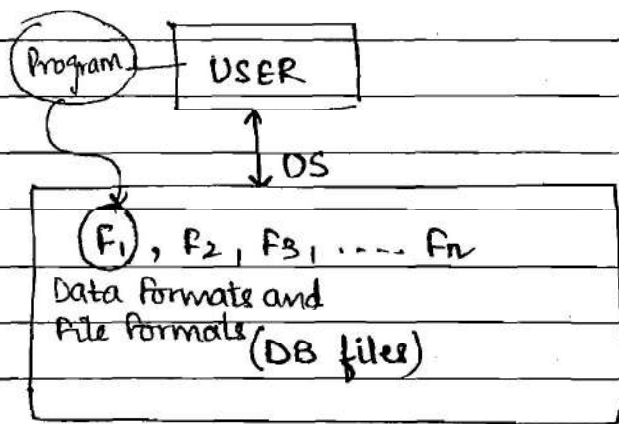 Program
USER
OS
F1, F2, F3, ..... Fn
Data formats and
File formats (DB files)